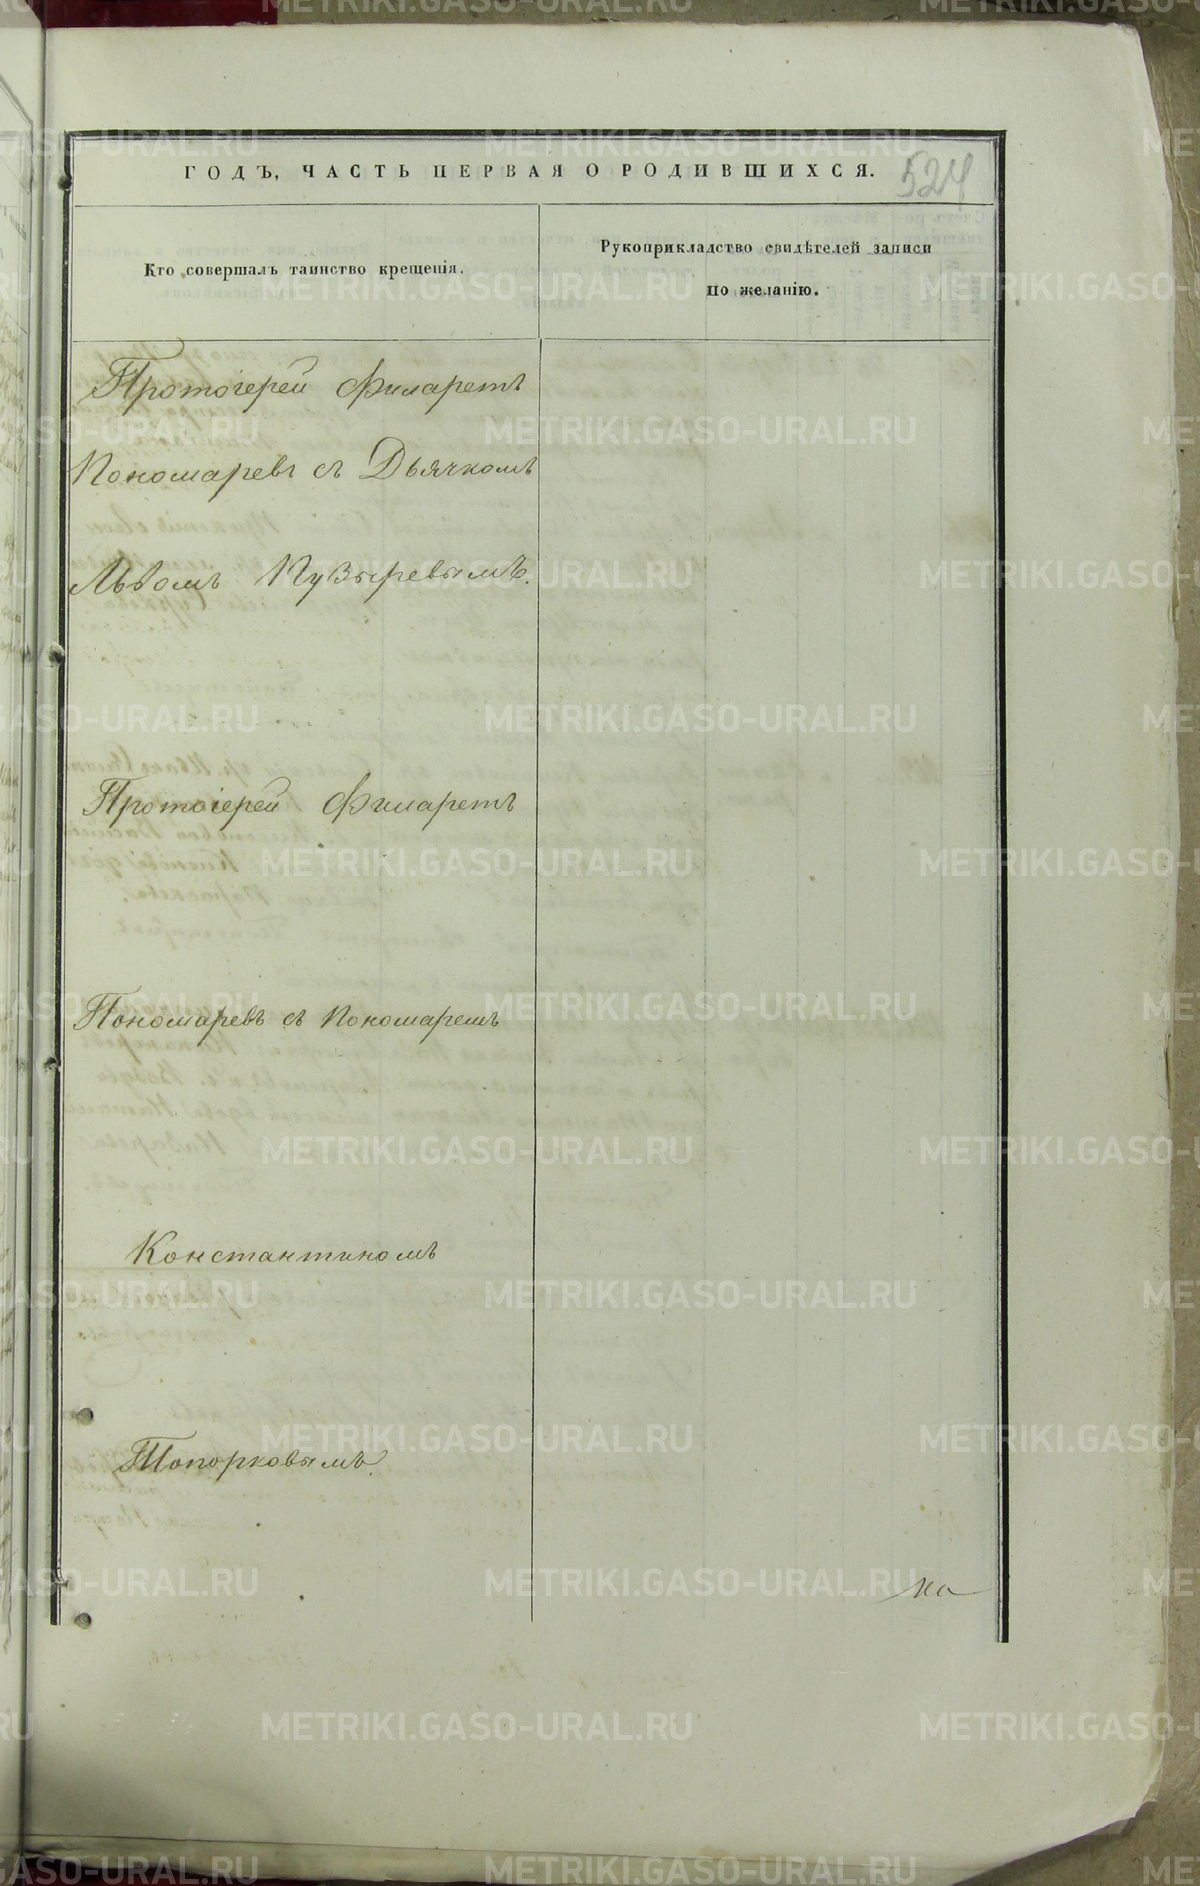 ГОДЪ, ЧАСТЬ ПЕРВАЯ О РОДИВШИХСЯ.
524
Кто совершалъ таинство крещенія.
Рукоприкладство свидѣтелей записи
по желанію.
Протоіерей Филаретъ
Пономаревъ съ Дьячкомъ
Львомъ Пузыревымъ.
Протоіерей Филаретъ
Пономаревъ съ Пономаремъ
Константиномъ
Топорковымъ.
на
METRIKI.GASO-URAL.RU